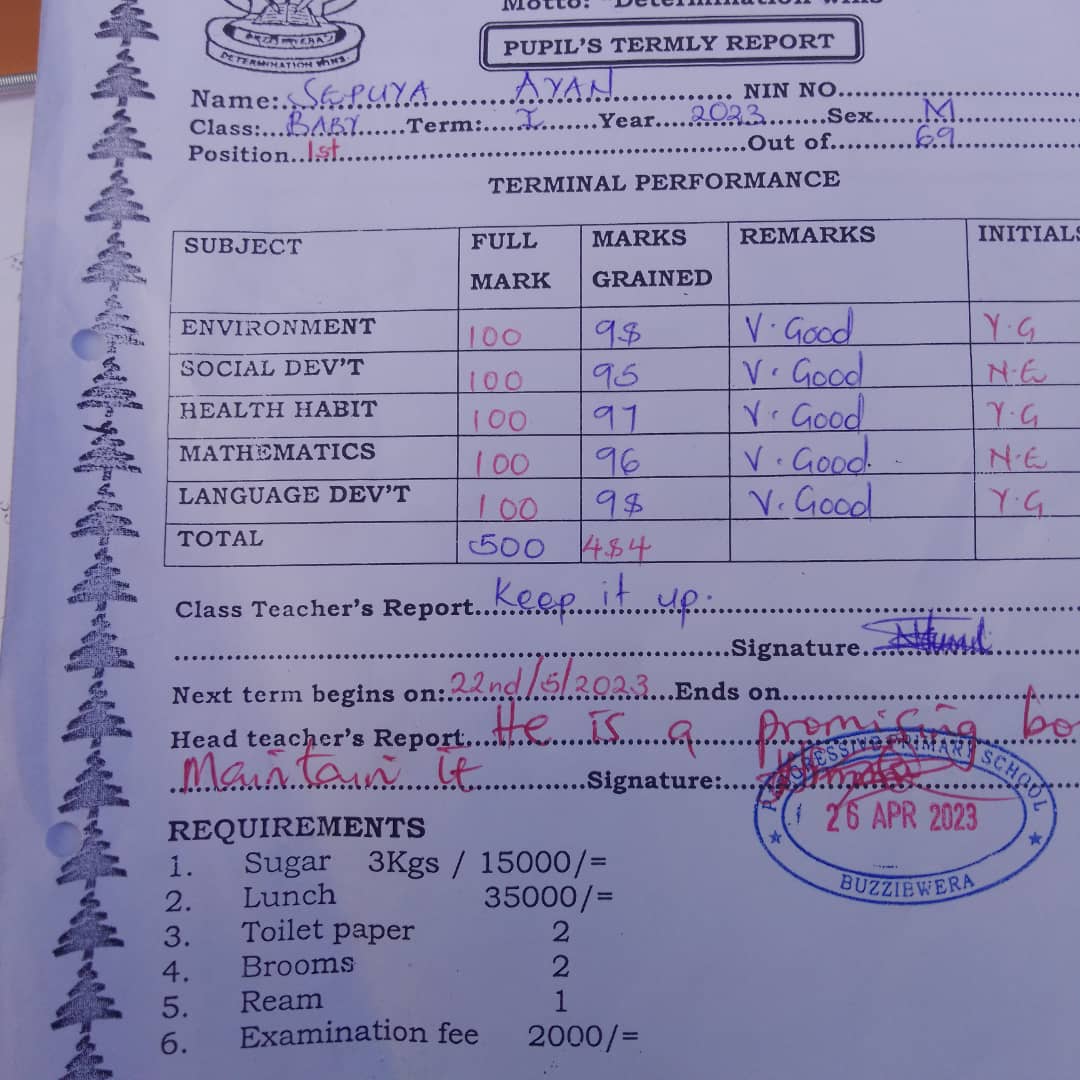 DETERMINATION WINS.
PUPIL'S TERMLY REPORT
Name:..SEPUYA AYAN.... NIN NO....
Class:...BABY......Term:.....I.......Year....2023......Sex......M....
Position..1st.......Out of.........69...
TERMINAL PERFORMANCE
SUBJECT FULL MARK MARKS GRAINED REMARKS INITIALS
ENVIRONMENT 100 98 V. Good Y.G
SOCIAL DEV'T 100 95 V. Good N.E
HEALTH HABIT 100 97 V. Good Y.G
MATHEMATICS 100 96 V. Good. N.E
LANGUAGE DEV'T 100 98 V. Good Y.G
TOTAL 500 484
Class Teacher's Report...Keep it up.
Signature....
Next term begins on:.22nd/5/2023...Ends on....
Head teacher's Report...He is a promising bo
Maintain it Signature:...
PROGRESSIVE PRIMARY SCHOOL
26 APR 2023
BUZZIBWERA
REQUIREMENTS
1. Sugar 3Kgs / 15000/=
2. Lunch 35000/=
3. Toilet paper 2
4. Brooms 2
5. Ream 1
6. Examination fee 2000/=